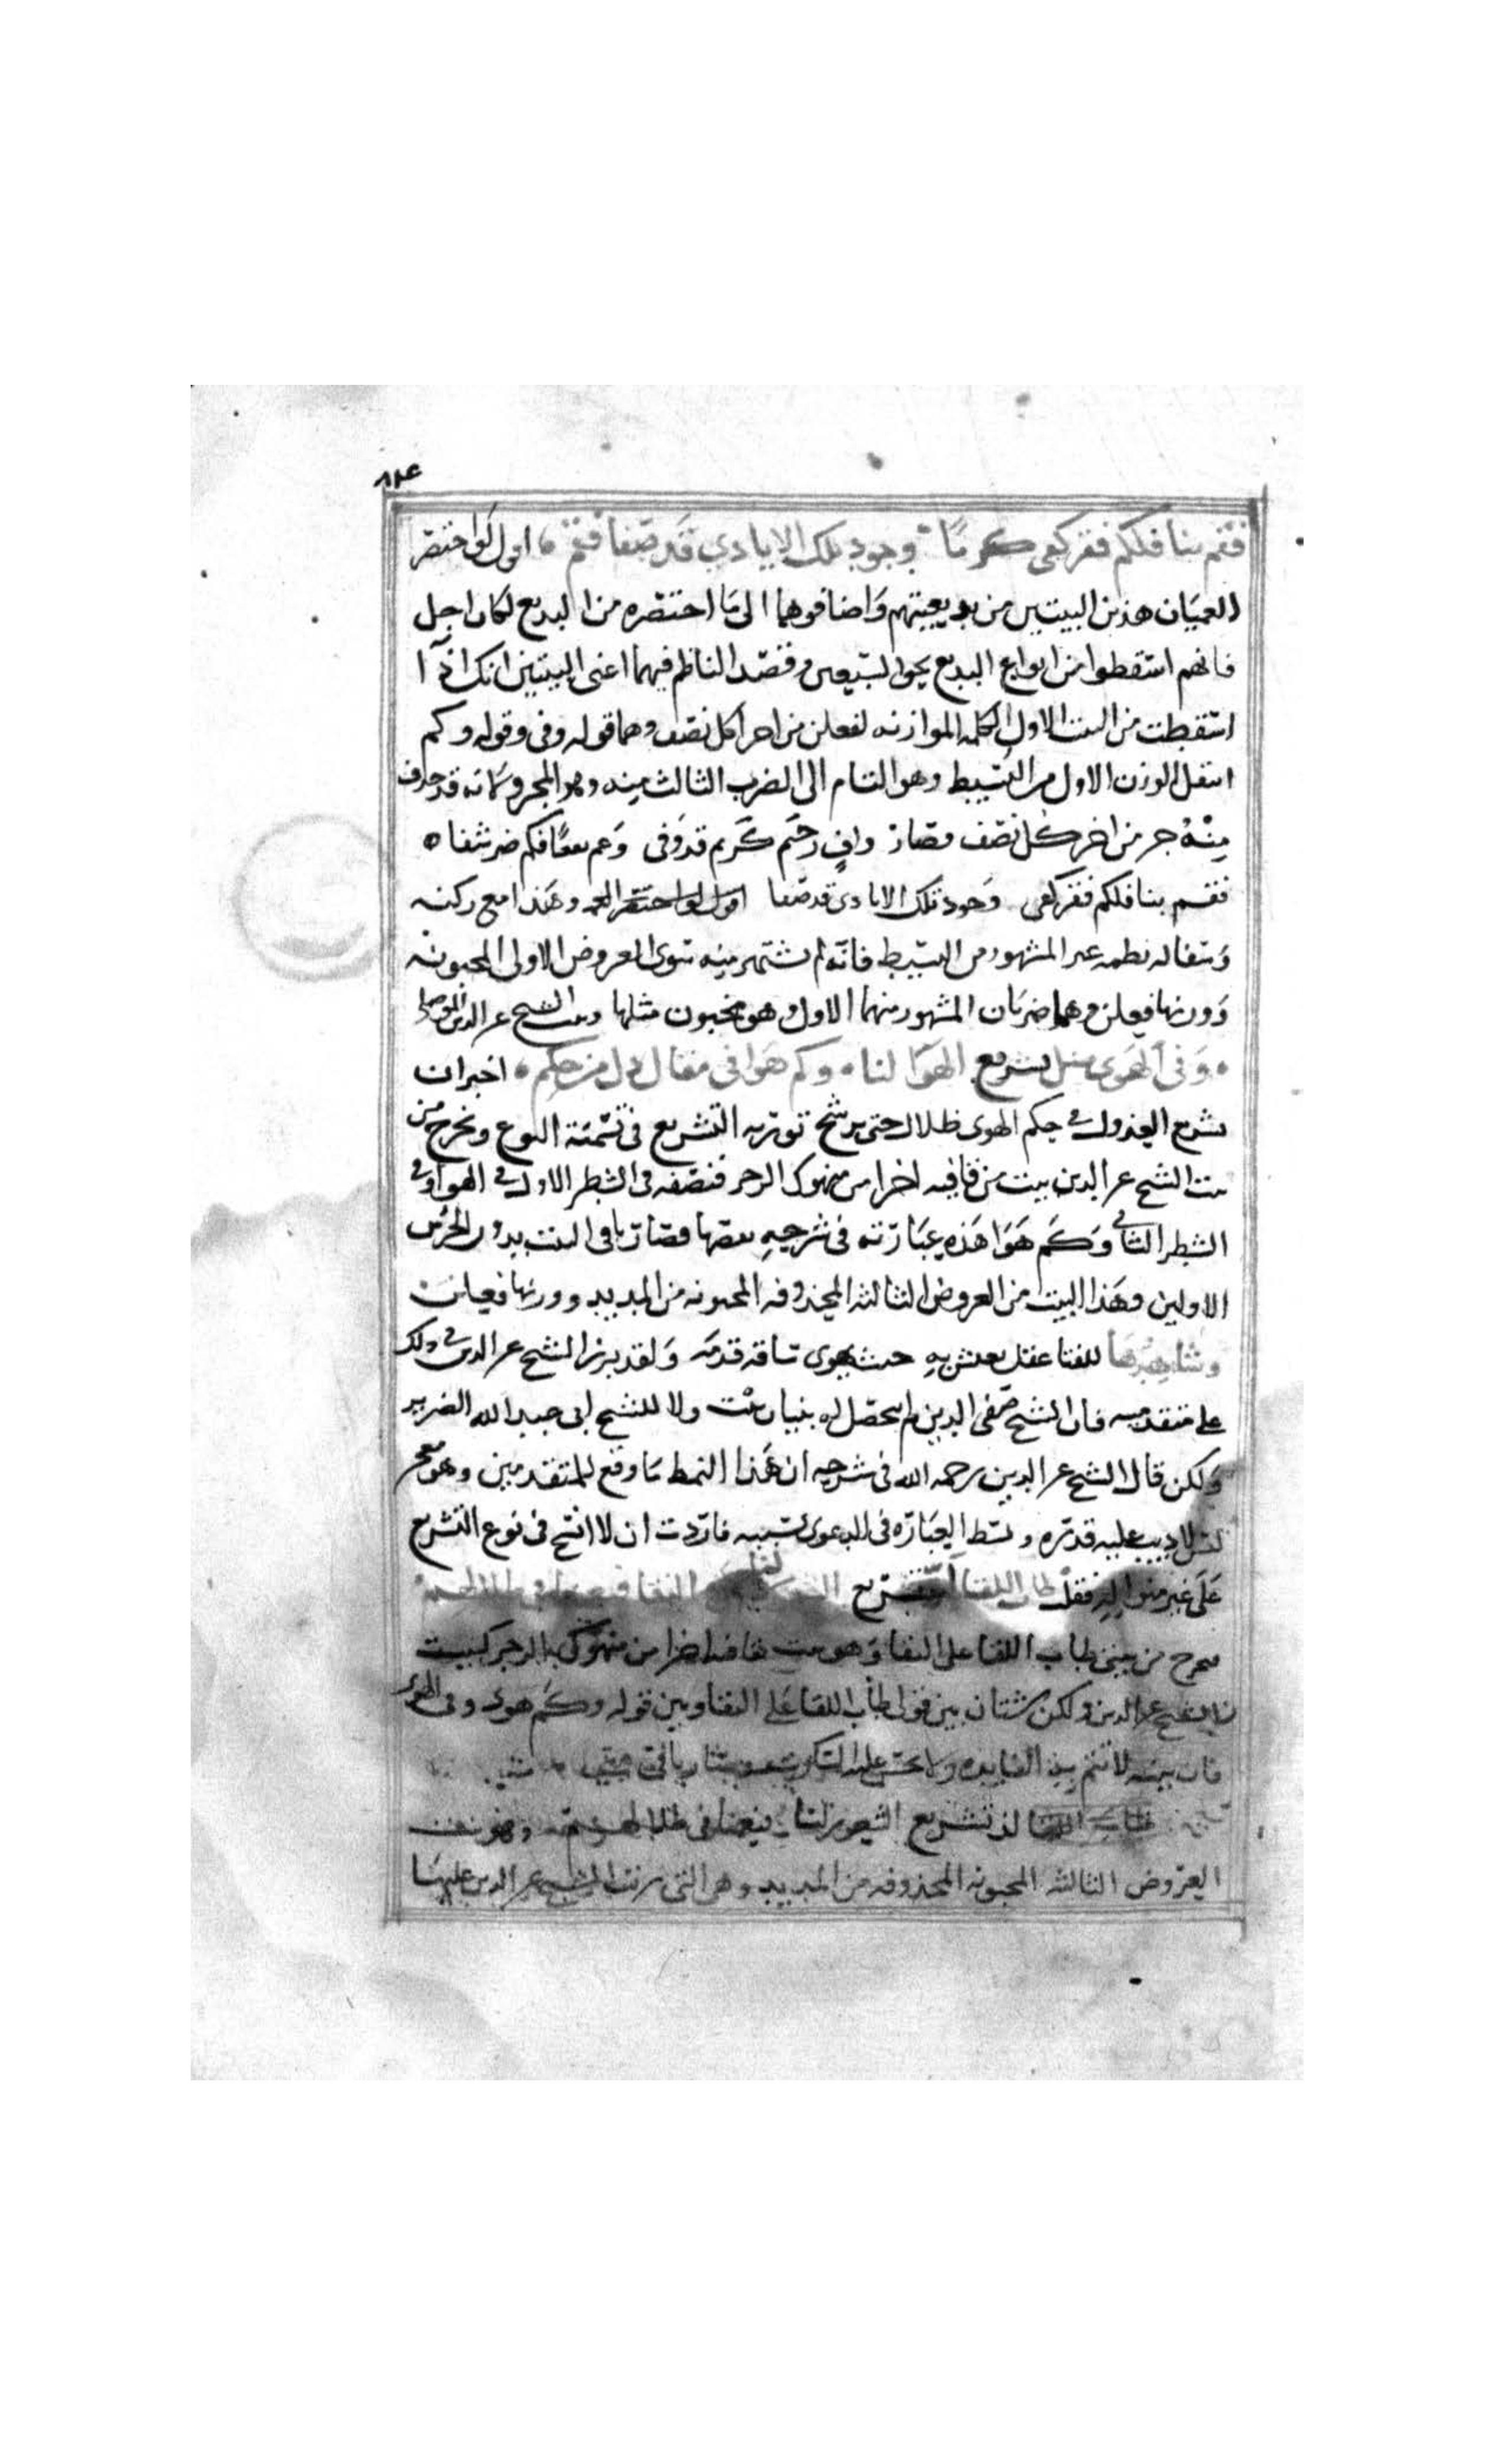 ١٢٤
فقم بنا فلكم فقر كفى كرما وجود تلك الايادي قد صفا فقم اقول لو اختصر
العميان هذين البيتين من بديعيتهم واضافوهما الى ما اختصره من البديع لكان اجل
فانهم اسقطوا من انواع البديع نحو السبعين وقصد الناظم فيهما اعنى البيتين انك اذا
اسقطت من البيت الاول الكلمة الموازنه لفعلن من اخر كل نصف وهما قوله وفى وقوله وكم
انتقل الوزن الاول من البسيط وهو التام الى الضرب الثالث منه وهو المجزو لانه قد حذف
منه جز من اخر كل نصف فصار واف رحيم كريم قد وفى وعم نفعا فكم ضر شفا
فقم بنا فلكم فقر كفى وجود تلك الايادى قد صفا اقول لو اختصر العم وهذا مع ركته
وثقاله نظمه غير المشهور من البسيط فانه لم يشتهر منه سوى العروض الاولى المخبونه
ووزنها فعلن وهما ضربان المشهور منهما الاول وهو مخبون مثلها وبيت الشيخ عز الدين الموصلى
وفى الهوى مثل تشريع الهوا لنا وكم هوا فى مقال دل من حكم اخبر ان
تشريع العذول فى حكم الهوى ظلال حتى يرشح توريه التشريع فى تسمية النوع ويخرج من
بيت الشيخ عز الدين بيت من قافيه اخرا من منهوك الرجز فنصفه فى الشطر الاول فى الهوا وفى
الشطر الثانى وكم هوا هذه عبارته فى شرحه بنصها فصار باقى البيت بدون الجزين
الاولين وهذا البيت من العروض الثالثه المحذوفه المخبونه من المديد ووزنها فعلن
وشاهدها للفتا عقل يعيش به حيث يهوى ساقه قدمه ولقد برز الشيخ عز الدين فى ذلك
على متقدميه فان الشيخ صفى الدين لم يحصل له بنيان بيت ولا للشيخ ابى عبد الله الضرير
ولكن قال الشيخ عز الدين رحمه الله فى شرحه ان هذا النمط ما وقع للمتقدمين وهو معجز
لتلاديب عليه قدره وبسط العباره فى الدعوى بسببه فاردت ان لا انسج فى نوع التشريع
على غير منواله فقلت طاب اللقا لذ تشريع الشعور لنا على النقا فنعمنا فى ظلالهم
يخرج من بيتى طاب اللقا على النقا وهو بيت ايضا من منهوك الرجز كبيت
الشيخ عز الدين ولكن شتان بين قولى طاب اللقا على النقا وبين قوله وكم هوى وفى الهوى
فان بيته لا تتم به الفايده ولا يحسن عليه السكوت وصار باقى بيتى
لذ تشريع الشعور لنا فنعمنا فى ظلالهم وهو من
العروض الثالثه المخبونه المحذوفه من المديد وهى التى رتب الشيخ عز الدين عليها